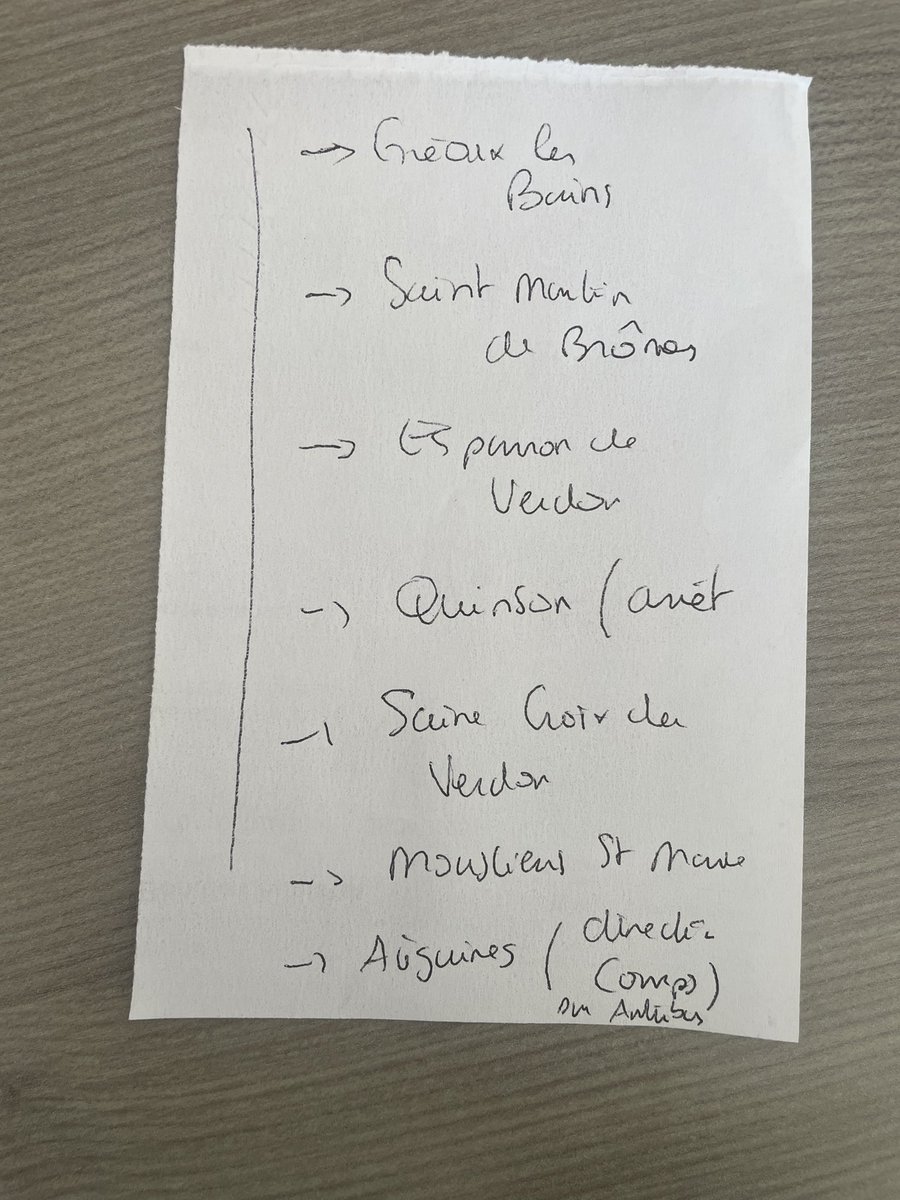 → Gréoux les
Bains
→ Saint Martin
de Brômes
→ Esparron de
Verdon
→ Quinson (arrêt
→ Sainte Croix du
Verdon
→ Moustiers St Marie
→ Aiguines ( direction
Comps)
Antibes